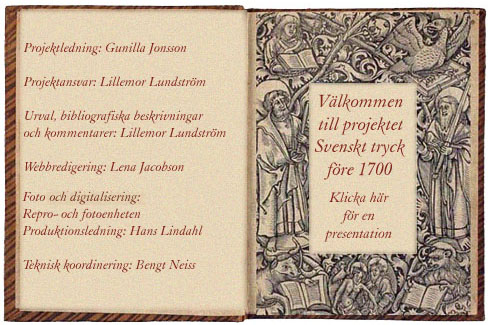 Projektledning: Gunilla Jonsson
Projektansvar: Lillemor Lundström
Urval, bibliografiska beskrivningar
och kommentarer: Lillemor Lundström
Webbredigering: Lena Jacobson
Foto och digitalisering:
Repro- och fotoenheten
Produktionsledning: Hans Lindahl
Teknisk koordinering: Bengt Neiss
Välkommen
till projektet
Svenskt tryck
före 1700
Klicka här
för en
presentation